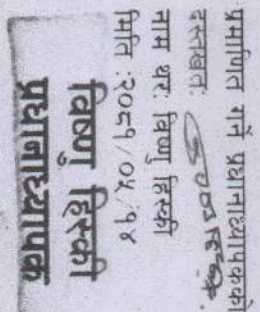 प्रमाणित गर्ने प्रधानाध्यापकको
दस्तखत:
नाम थर: विष्णु हिस्की
मिति :२०८१/०५/१४
विष्णु हिस्की
प्रधानाध्यापक